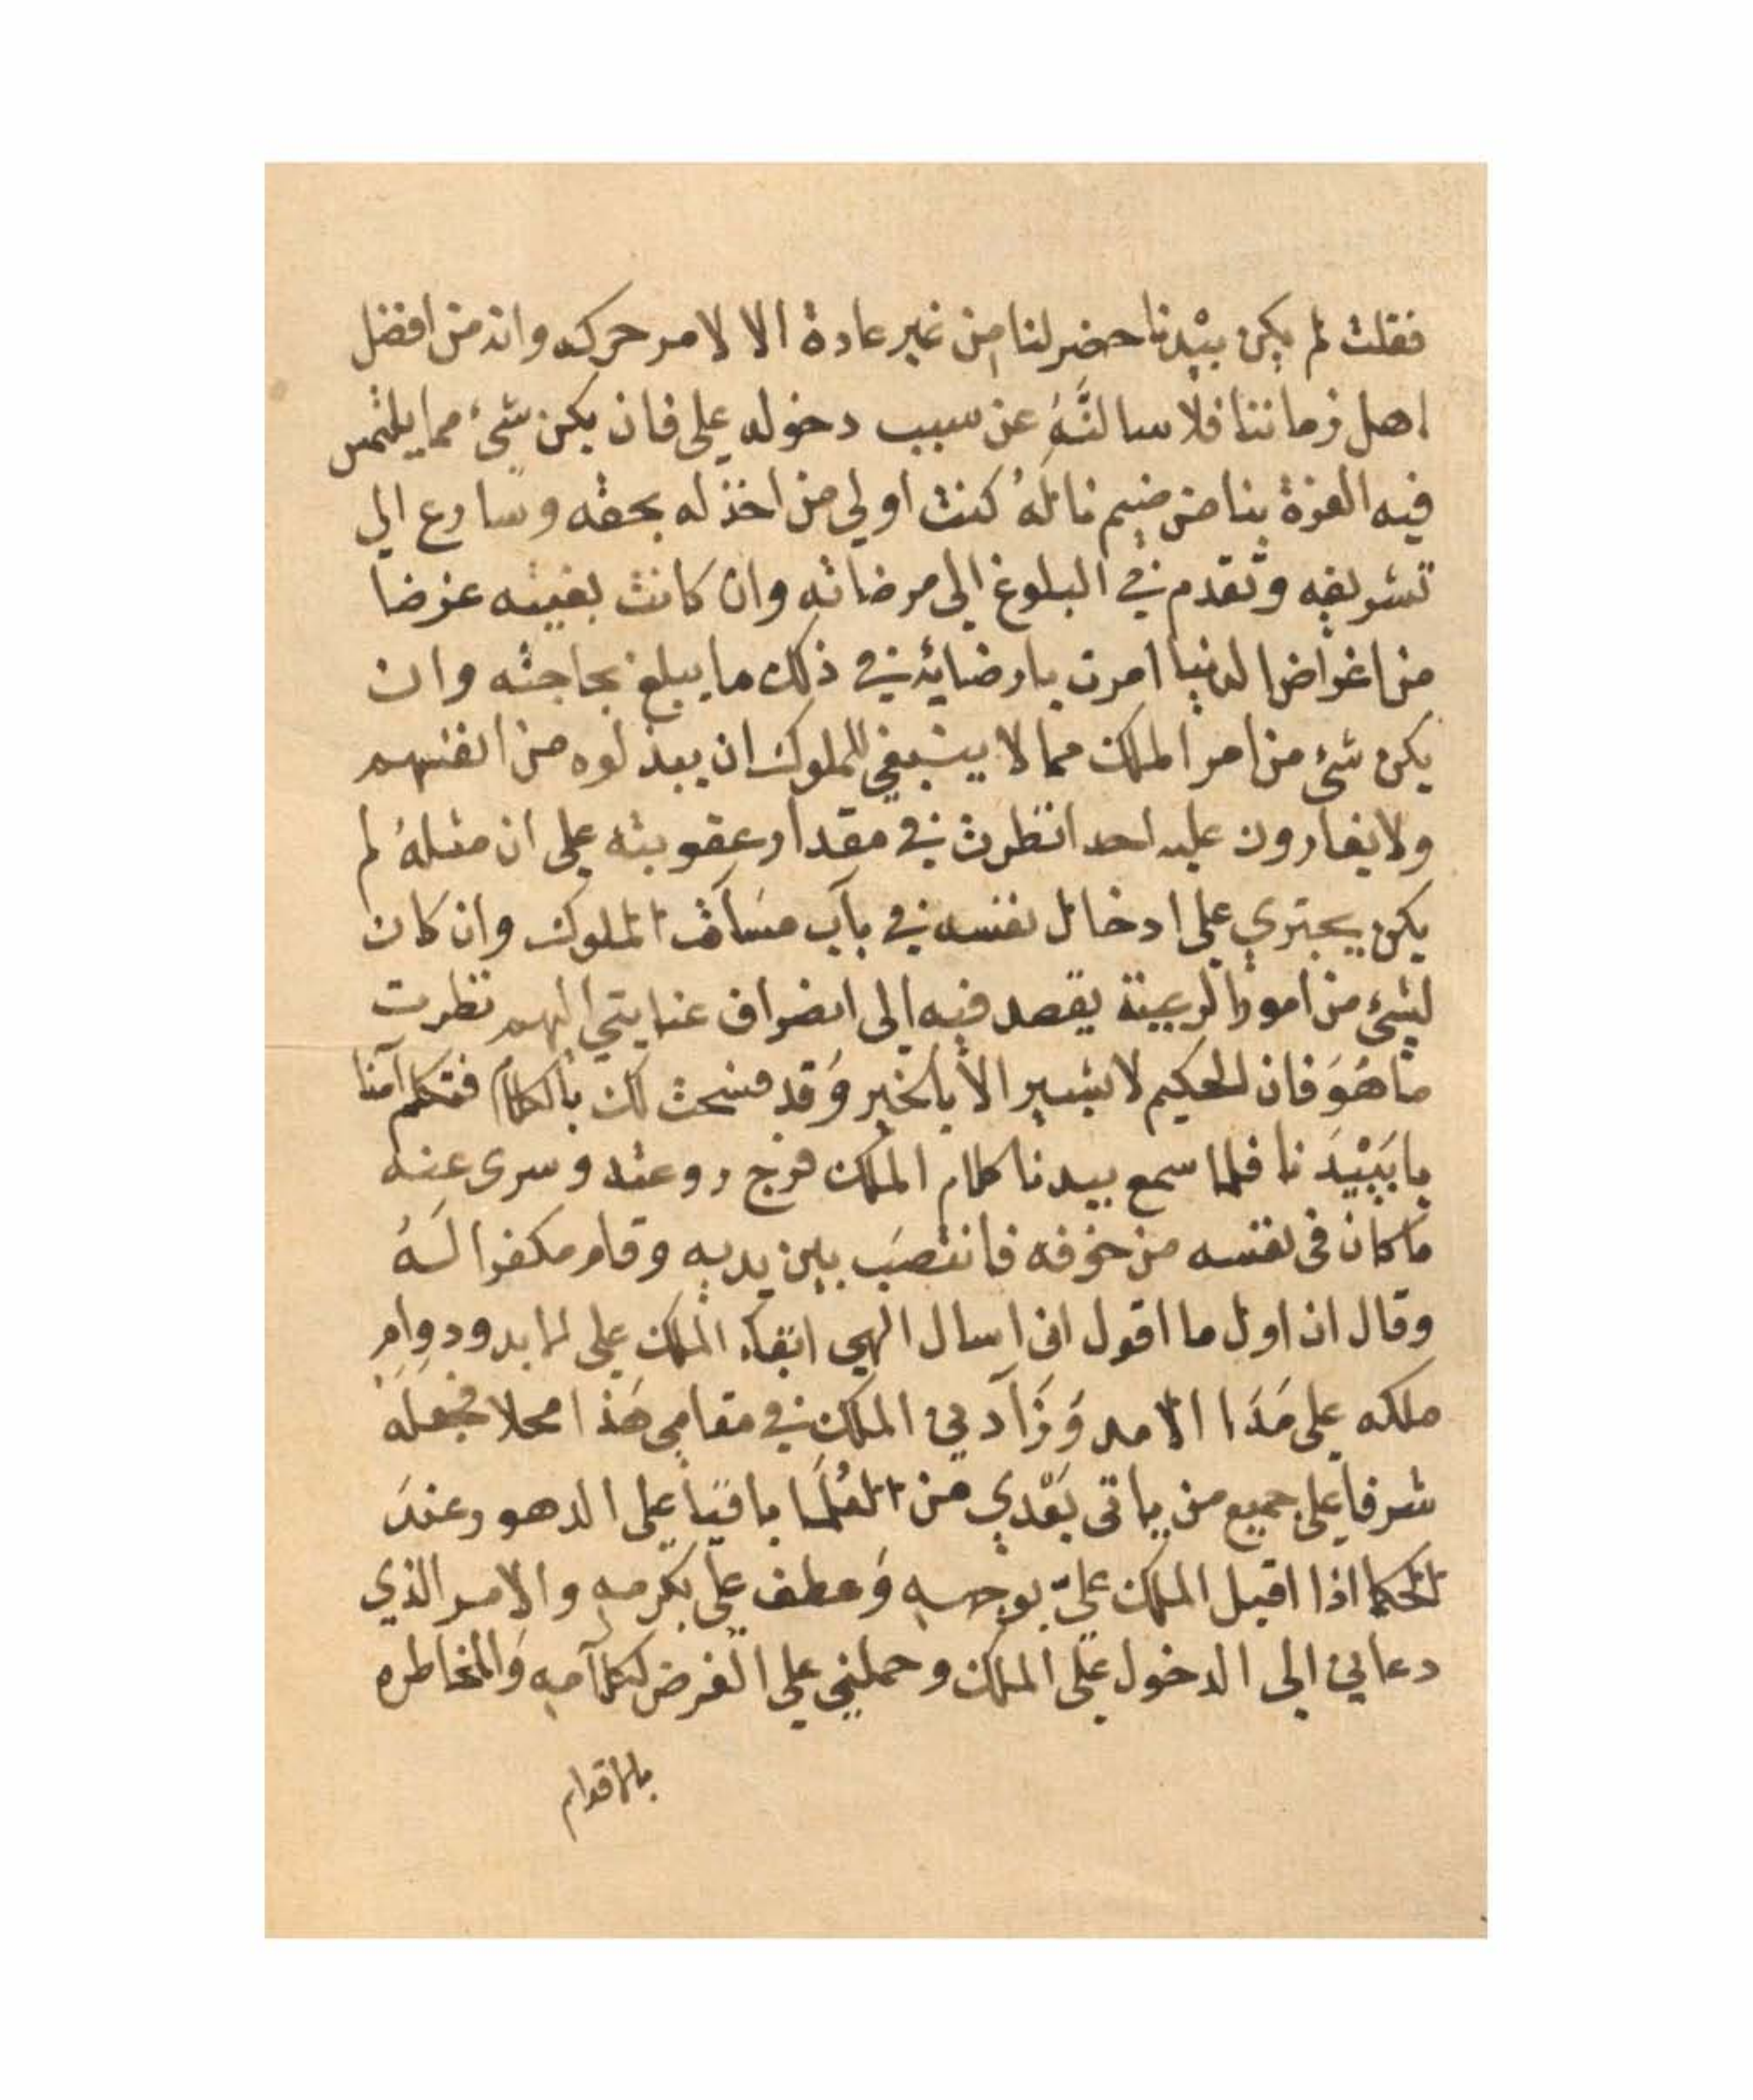 فقلت لم يكن بيدنا حضر لنا من غير عادة الا لامر حركه وانه من افضل
اهل زماننا فلاسالنَّهُ عن سبب دخوله علي فان يكن شيء مما يلتمس
فيه العزة بنا من ضيم نالهُ كنت اولى من اخذ له بحقه وسارع الي
تشريفه وتقدم في البلوغ الى مرضاته وان كانت بغيته عرضا
من اغراض الدنيا امرت بارضائه في ذلك ما يبلغ بحاجته وان
يكن شيء من امر الملك مما لا ينبغي للملوك ان يبذلوه من انفسهم
ولا يغارون عليه احد انظرت في مقدار عقوبته على ان مثلهُ لم
يكن يجتري على ادخال نفسه في باب الملوك وان كان
لشيء من امور الرعية يقصد فيه الى انصراف عنايتي اليهم نظرت
ما هُوَ فان الحكيم لا يشير الا بالخير وَقد فسحت لك بالكلام فتكلم آمنا
يا بَيْدَنا فلما سمع بيدنا كلام الملك فرج روعته وسرى عنه
ما كان فى نفسه من خوفه فانتصَب بين يديه وقام مكفرا لَهُ
وقال ان اول ما اقول انى اسال الهي ابقاء الملك على الابد ودوام
ملكه على مَدَا الامد وَزَآدني الملك في مقامي هَذا محلا فجعله
شرفا على جميع من ياتى بَعْدي من العُلَمَا باقيا على الدهور عندَ
الحكما اذا اقبل الملك عليّ بوجهه وَعطف علي بكرمه والامر الذي
دعاني الى الدخول على الملك وحملني على الغرض لكلآمه وَالمخاطره
بالاقدام